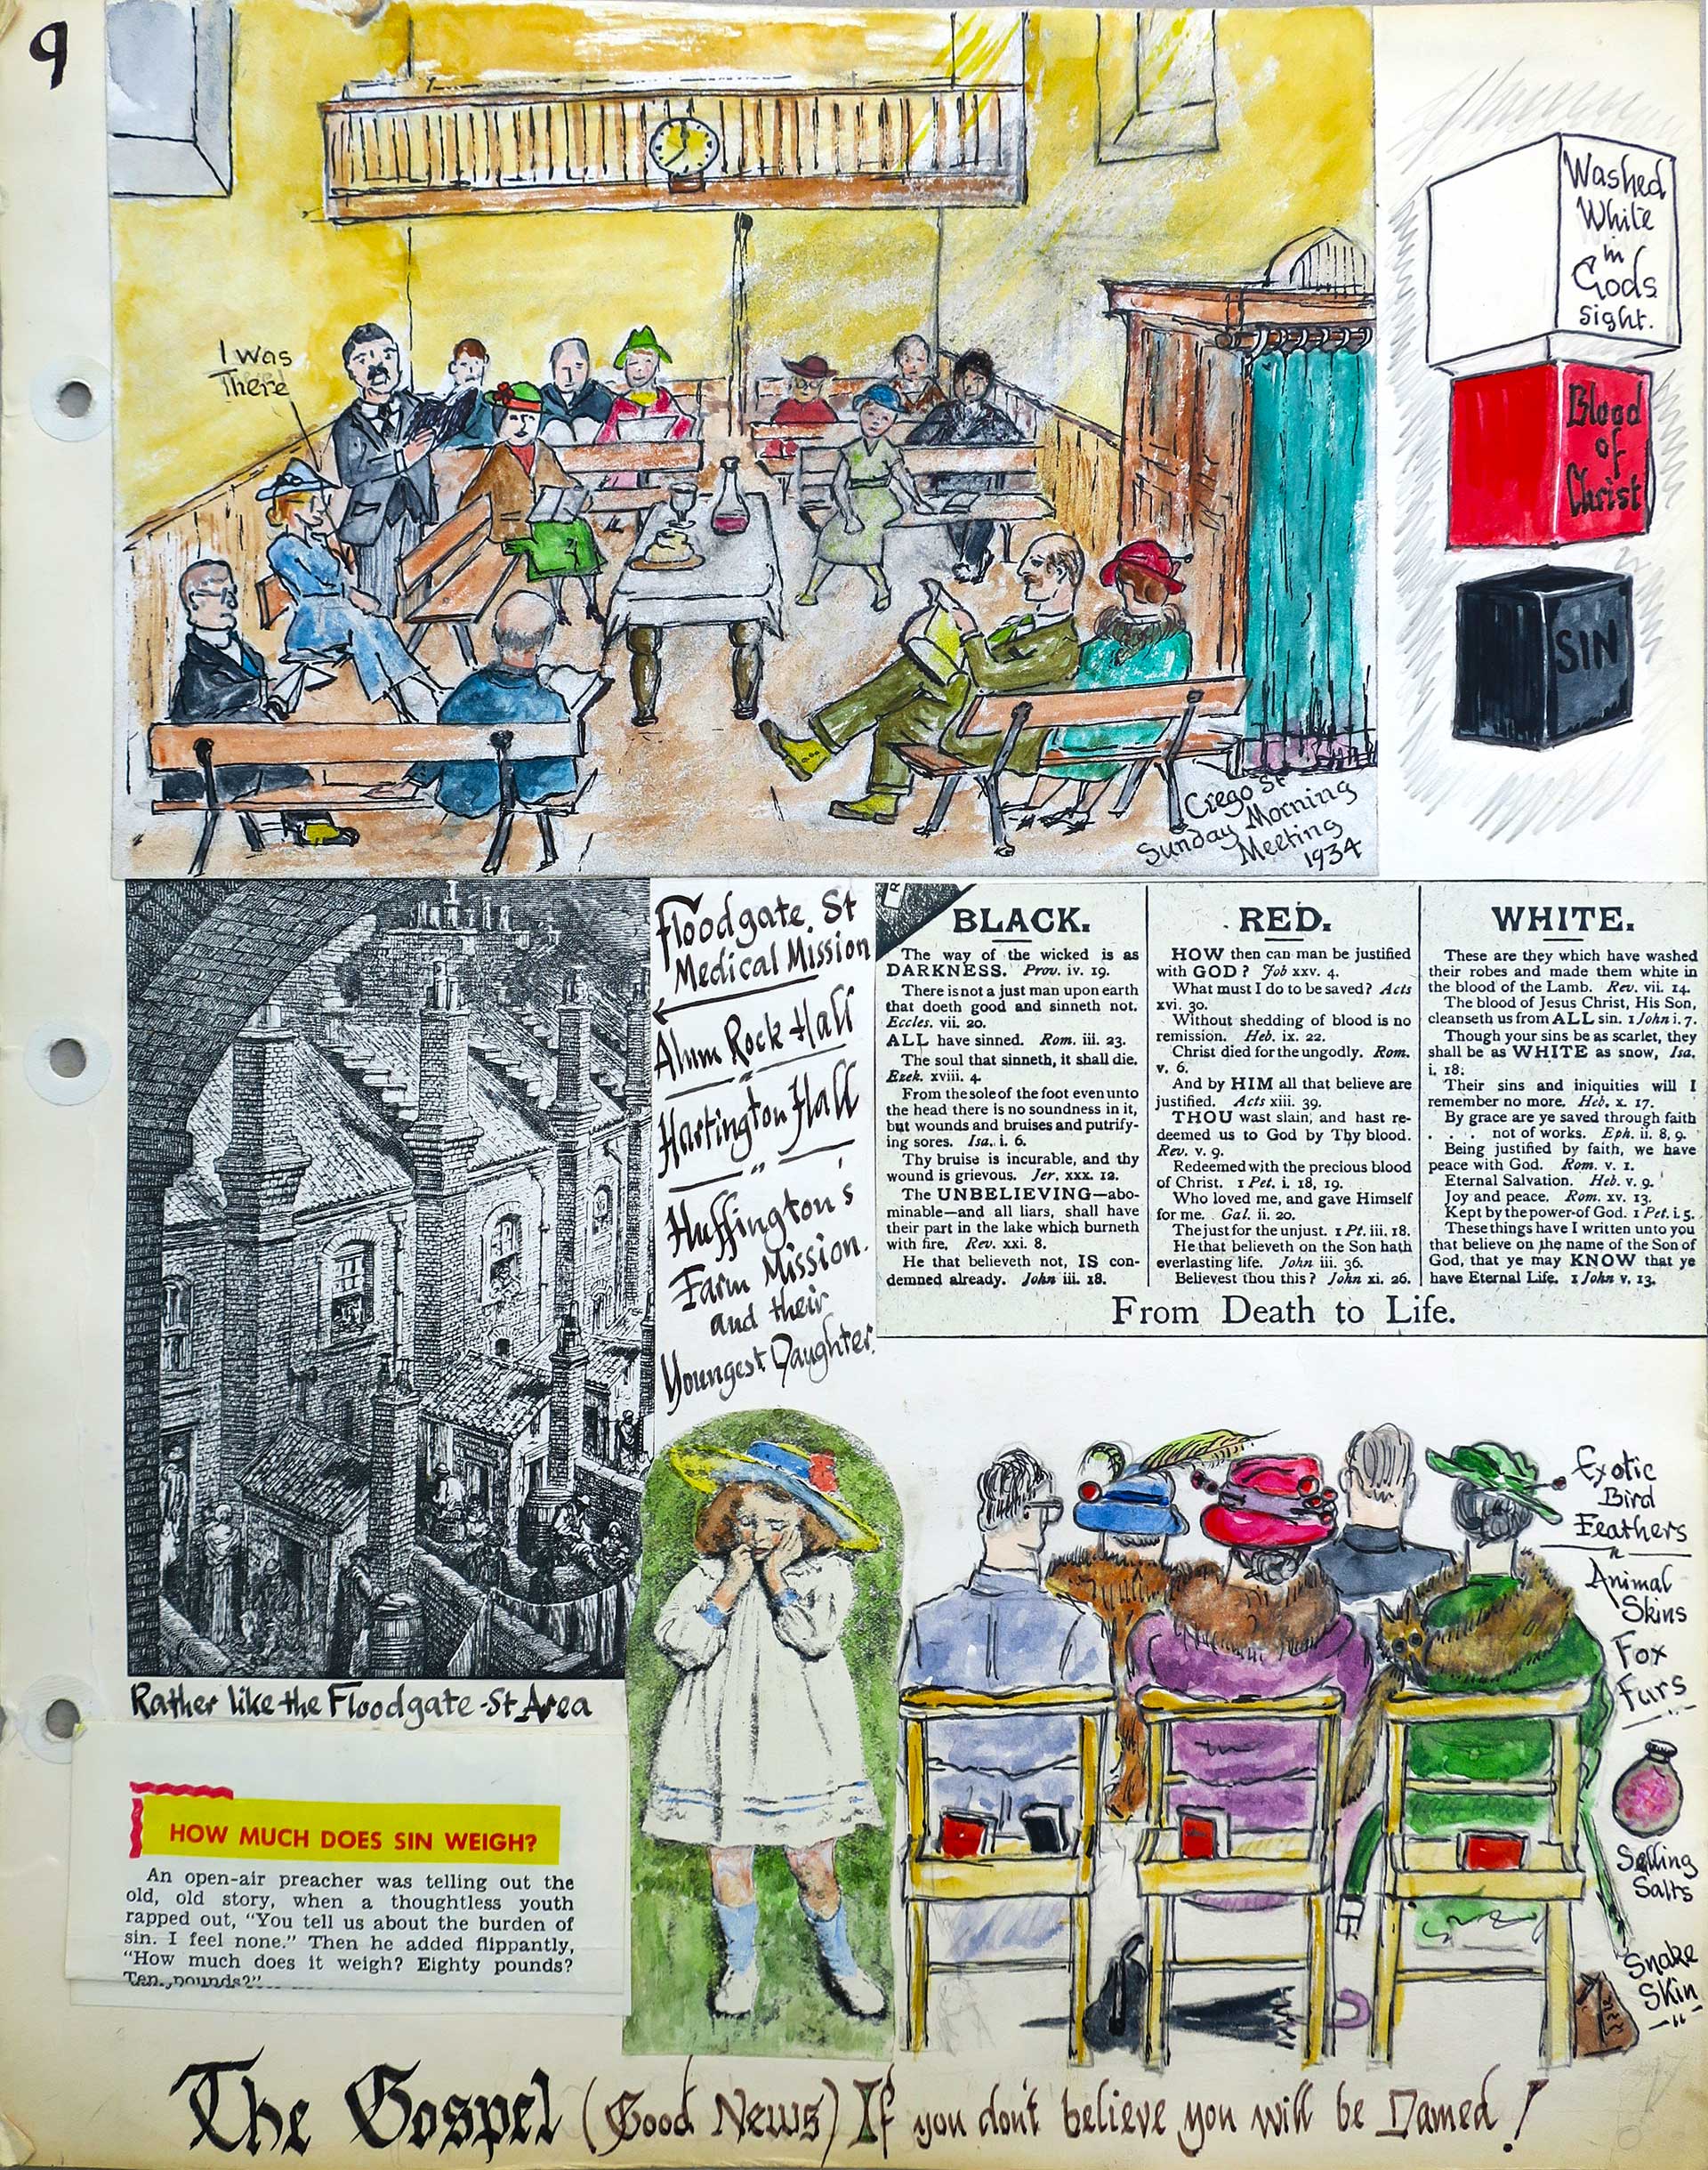 9
I was
There
Crego St
Sunday Morning
Meeting
1934
Washed
White
in
Gods
sight.
Blood
of
Christ
SIN
Floodgate St
Medical Mission
Alum Rock Hall
"
Hartington Hall
"
Huffington's
Farm Mission.
and their
Youngest Daughter.
BLACK.
The way of the wicked is as
DARKNESS. Prov. iv. 19.
There is not a just man upon earth
that doeth good and sinneth not.
Eccles. vii. 20.
ALL have sinned. Rom. iii. 23.
The soul that sinneth, it shall die.
Ezek. xviii. 4.
From the sole of the foot even unto
the head there is no soundness in it,
but wounds and bruises and putrify-
ing sores. Isa. i. 6.
Thy bruise is incurable, and thy
wound is grievous. Jer. xxx. 12.
The UNBELIEVING—abo-
minable—and all liars, shall have
their part in the lake which burneth
with fire. Rev. xxi. 8.
He that believeth not, IS con-
demned already. John iii. 18.
RED.
HOW then can man be justified
with GOD? Job xxv. 4.
What must I do to be saved? Acts
xvi. 30.
Without shedding of blood is no
remission. Heb. ix. 22.
Christ died for the ungodly. Rom.
v. 6.
And by HIM all that believe are
justified. Acts xiii. 39.
THOU wast slain, and hast re-
deemed us to God by Thy blood.
Rev. v. 9.
Redeemed with the precious blood
of Christ. 1 Pet. i. 18, 19.
Who loved me, and gave Himself
for me. Gal. ii. 20.
The just for the unjust. 1 Pt. iii. 18.
He that believeth on the Son hath
everlasting life. John iii. 36.
Believest thou this? John xi. 26.
WHITE.
These are they which have washed
their robes and made them white in
the blood of the Lamb. Rev. vii. 14.
The blood of Jesus Christ, His Son,
cleanseth us from ALL sin. 1 John i. 7.
Though your sins be as scarlet, they
shall be as WHITE as snow, Isa.
i. 18.
Their sins and iniquities will I
remember no more. Heb. x. 17.
By grace are ye saved through faith
. . . not of works. Eph. ii. 8, 9.
Being justified by faith, we have
peace with God. Rom. v. 1.
Eternal Salvation. Heb. v. 9.
Joy and peace. Rom. xv. 13.
Kept by the power of God. 1 Pet. i. 5.
These things have I written unto you
that believe on the name of the Son of
God, that ye may KNOW that ye
have Eternal Life. 1 John v. 13.
From Death to Life.
Rather like the Floodgate-St Area
HOW MUCH DOES SIN WEIGH?
An open-air preacher was telling out the
old, old story, when a thoughtless youth
rapped out, “You tell us about the burden of
sin. I feel none.” Then he added flippantly,
“How much does it weigh? Eighty pounds?
Ten pounds?”
Exotic
Bird
Feathers
"
Animal
Skins
Fox
Furs
Smlling
Salts
Snake
Skin
"
The Gospel (Good News) If you don't believe you will be Damed!